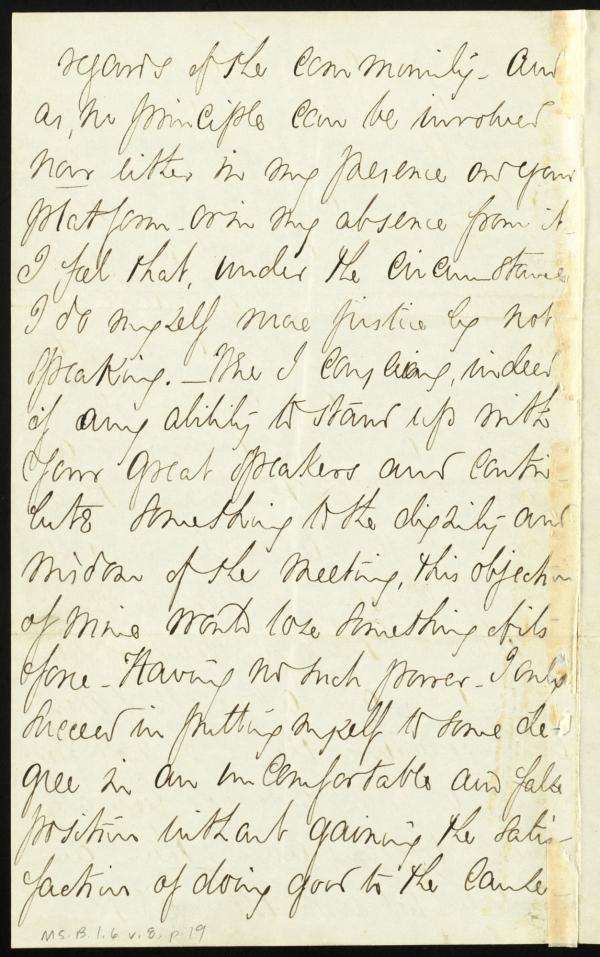 regards of the community - and
as, no principle can be involved
now either in my presence on your
platform - or in my absence from it -
I feel that, under the circumstances
I do myself more justice by not
speaking. - Were I conscious, indeed
of any ability to stand up with
your great speakers and contri-
bute something to the dignity and
wisdom of the meeting, this objection
of mine would lose something of its
force - Having no such power - I only
succeed in putting myself to some de-
gree in an uncomfortable and false
position without gaining the satis-
faction of doing good to the cause -
MS. B. 1. 6 v. 8. p. 19